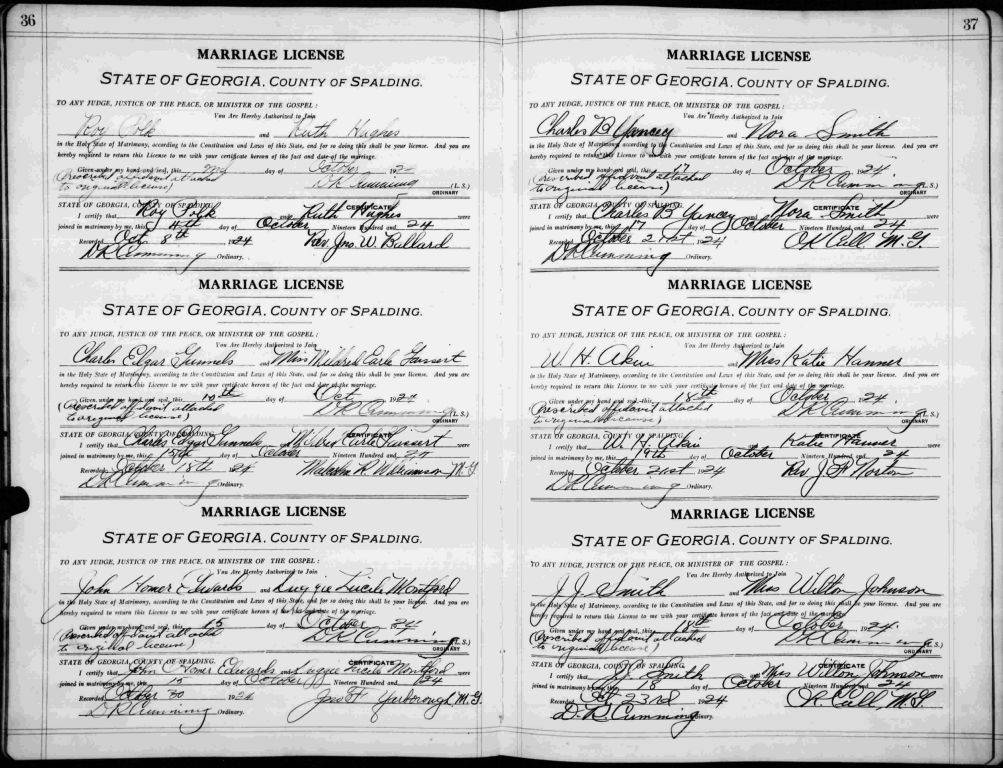 36
MARRIAGE LICENSE
STATE OF GEORGIA, COUNTY OF SPALDING.
TO ANY JUDGE, JUSTICE OF THE PEACE, OR MINISTER OF THE GOSPEL :
You Are Hereby Authorized to Join
Roy Polk and Ruth Hughes
in the Holy State of Matrimony, according to the Constitution and Laws of this State, and for so doing this shall be your license. And you are
hereby required to return this License to me with your certificate hereon of the fact and date of the marriage.
Given under my hand and seal, this day of October 192
(Prescribed affidavit attached
to original license) D R Cumming (L. S.)
ORDINARY
STATE OF GEORGIA, COUNTY OF SPALDING. CERTIFICATE
I certify that Roy Polk and Ruth Hughes were
joined in matrimony by me, this 4th day of October Nineteen Hundred and 24
Recorded Oct 8th 1924 Rev Jno. W. Bullard
D R Cumming Ordinary.
MARRIAGE LICENSE
STATE OF GEORGIA, COUNTY OF SPALDING.
TO ANY JUDGE, JUSTICE OF THE PEACE, OR MINISTER OF THE GOSPEL :
You Are Hereby Authorized to Join
Charles Edgar Gunnels and Miss Mildred Earle
in the Holy State of Matrimony, according to the Constitution and Laws of this State, and for so doing this shall be your license. And you are
hereby required to return this License to me with your certificate hereon of the fact and date of the marriage.
Given under my hand and seal, this 10th day of Oct 1924
(Prescribed affidavit attached
to original license) D R Cumming (L. S.)
ORDINARY
STATE OF GEORGIA, COUNTY OF SPALDING. CERTIFICATE
I certify that Charles Edgar Gunnels and Mildred Earle were
joined in matrimony by me, this 15th day of October Nineteen Hundred and 24
Recorded October 18th 24 Malcolm R. Williamson M G
D R Cumming Ordinary.
MARRIAGE LICENSE
STATE OF GEORGIA, COUNTY OF SPALDING.
TO ANY JUDGE, JUSTICE OF THE PEACE, OR MINISTER OF THE GOSPEL :
You Are Hereby Authorized to Join
John Homer Edwards and Lucile Montford
in the Holy State of Matrimony, according to the Constitution and Laws of this State, and for so doing this shall be your license. And you are
hereby required to return this License to me with your certificate hereon of the fact and date of the marriage.
Given under my hand and seal, this 15 day of October 24
(Prescribed affidavit attached
to original license) D R Cumming (L. S.)
ORDINARY
STATE OF GEORGIA, COUNTY OF SPALDING. CERTIFICATE
I certify that John Homer Edwards and Lucile Montford were
joined in matrimony by me, this 15 day of October Nineteen Hundred and 24
Recorded October 30 1924 Yarborough M. G.
D R Cumming Ordinary.
37
MARRIAGE LICENSE
STATE OF GEORGIA, COUNTY OF SPALDING.
TO ANY JUDGE, JUSTICE OF THE PEACE, OR MINISTER OF THE GOSPEL :
You Are Hereby Authorized to Join
Charles B Yancey and Nora Smith
in the Holy State of Matrimony, according to the Constitution and Laws of this State, and for so doing this shall be your license. And you are
hereby required to return this License to me with your certificate hereon of the fact and date of the marriage.
Given under my hand and seal, this 17 day of October 1924.
(Prescribed affidavit attached
to original license) D R Cumming (L. S.)
ORDINARY
STATE OF GEORGIA, COUNTY OF SPALDING. CERTIFICATE
I certify that Charles B Yancey and Nora Smith were
joined in matrimony by me, this 17 day of October Nineteen Hundred and 24
Recorded October 21st 1924 Cull M. G.
D R Cumming Ordinary.
MARRIAGE LICENSE
STATE OF GEORGIA, COUNTY OF SPALDING.
TO ANY JUDGE, JUSTICE OF THE PEACE, OR MINISTER OF THE GOSPEL :
You Are Hereby Authorized to Join
W. H. Akin and Miss Katie Hanner
in the Holy State of Matrimony, according to the Constitution and Laws of this State, and for so doing this shall be your license. And you are
hereby required to return this License to me with your certificate hereon of the fact and date of the marriage.
Given under my hand and seal, this 18th day of October 1924.
(Prescribed affidavit attached
to original license) D R Cumming (L. S.)
ORDINARY
STATE OF GEORGIA, COUNTY OF SPALDING. CERTIFICATE
I certify that W. H. Akin and Katie Hanner were
joined in matrimony by me, this 19th day of October Nineteen Hundred and 24
Recorded October 21st 1924 Rev J. F. Norton
D R Cumming Ordinary.
MARRIAGE LICENSE
STATE OF GEORGIA, COUNTY OF SPALDING.
TO ANY JUDGE, JUSTICE OF THE PEACE, OR MINISTER OF THE GOSPEL :
You Are Hereby Authorized to Join
J. J. Smith and Miss Wilton Johnson
in the Holy State of Matrimony, according to the Constitution and Laws of this State, and for so doing this shall be your license. And you are
hereby required to return this License to me with your certificate hereon of the fact and date of the marriage.
Given under my hand and seal, this 18th day of October 1924.
(Prescribed affidavit attached
to original license) D R Cumming (L. S.)
ORDINARY
STATE OF GEORGIA, COUNTY OF SPALDING. CERTIFICATE
I certify that J. J. Smith and Miss Wilton Johnson were
joined in matrimony by me, this 18 day of October Nineteen Hundred and 24
Recorded Oct 23rd 1924 Cull M. G.
D. R. Cumming Ordinary.